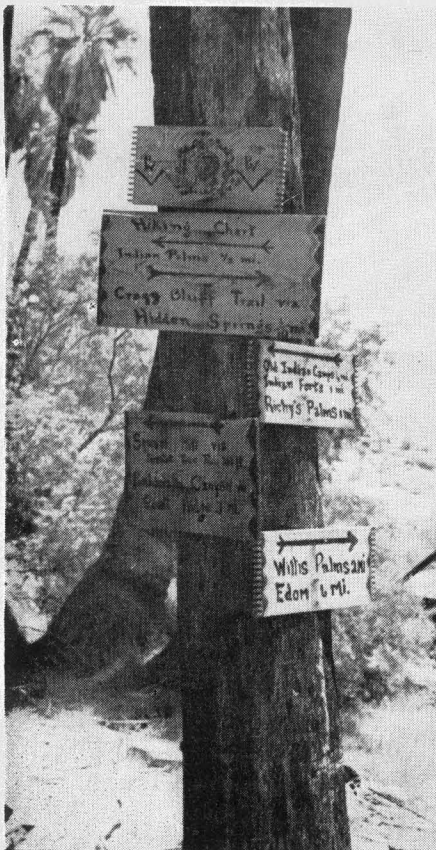 Hiking Chart
Indian Palms ½ mi.
Cragg Bluff Trail via
Hidden Springs 1 mi.
Old Indian Camp 1 mi
Indian Forts 1 mi
Richy's Palms 1 mi
via
Canyon
Goat Ridge 1 Mi.
Willis Palms 2 mi
Edom 6 Mi.